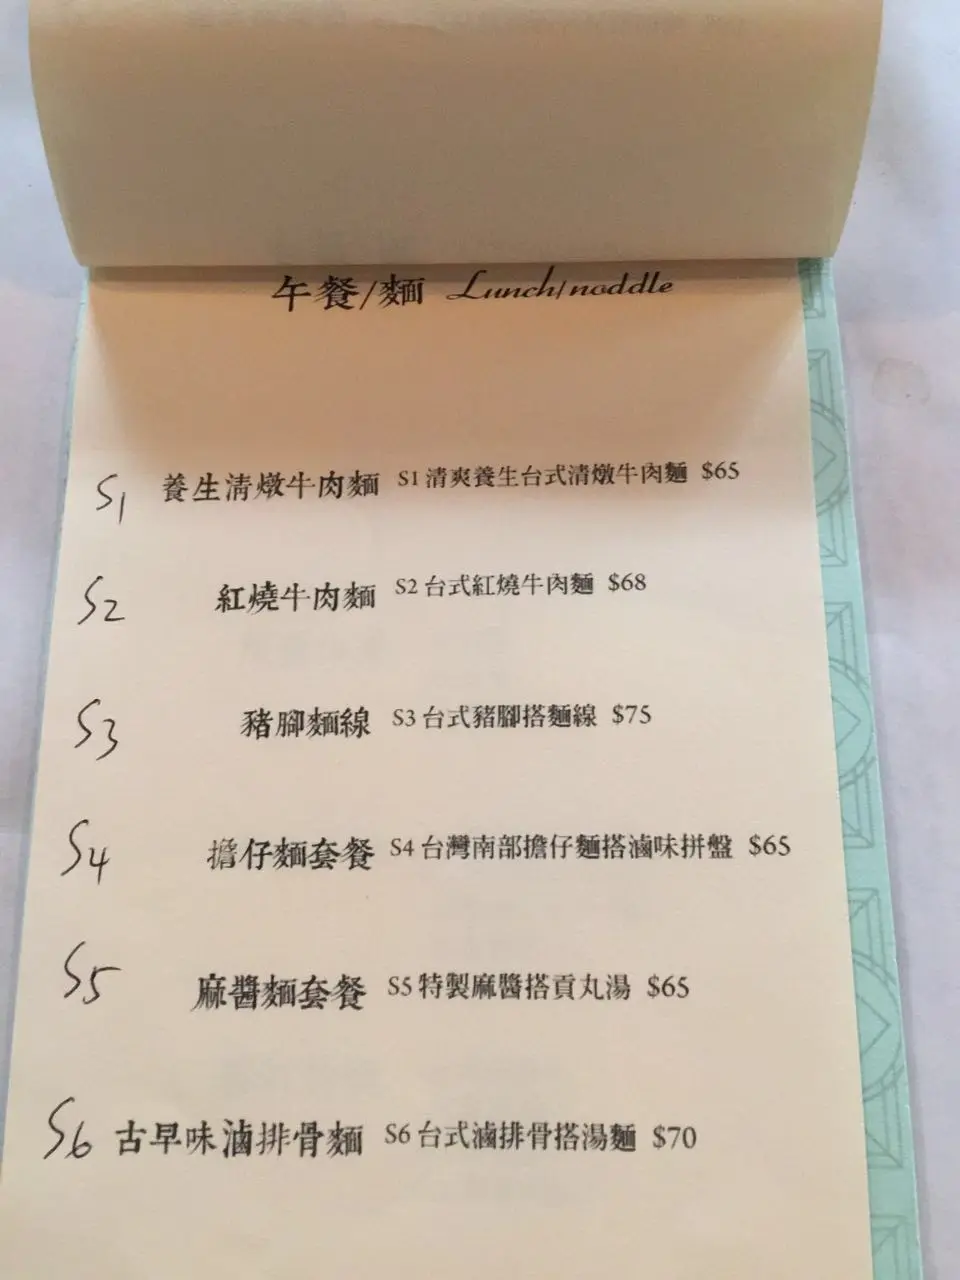 午餐/麵 Lunch/noddle
S1 養生清燉牛肉麵 S1 清爽養生台式清燉牛肉麵 $65
S2 紅燒牛肉麵 S2 台式紅燒牛肉麵 $68
S3 豬腳麵線 S3 台式豬腳搭麵線 $75
S4 擔仔麵套餐 S4 台灣南部擔仔麵搭滷味拼盤 $65
S5 麻醬麵套餐 S5 特製麻醬搭貢丸湯 $65
S6 古早味滷排骨麵 S6 台式滷排骨搭湯麵 $70